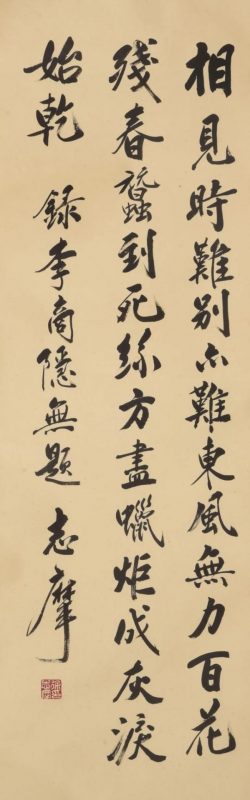 相見時難別亦難東風無力百花
殘春蠶到死絲方盡蠟炬成灰淚
始乾 錄李商隱無題 志摩